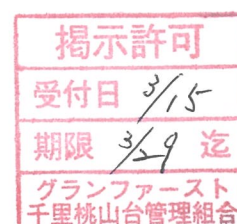 掲示許可
受付日 3/15
期限 3/29 迄
グランファースト
千里桃山台管理組合